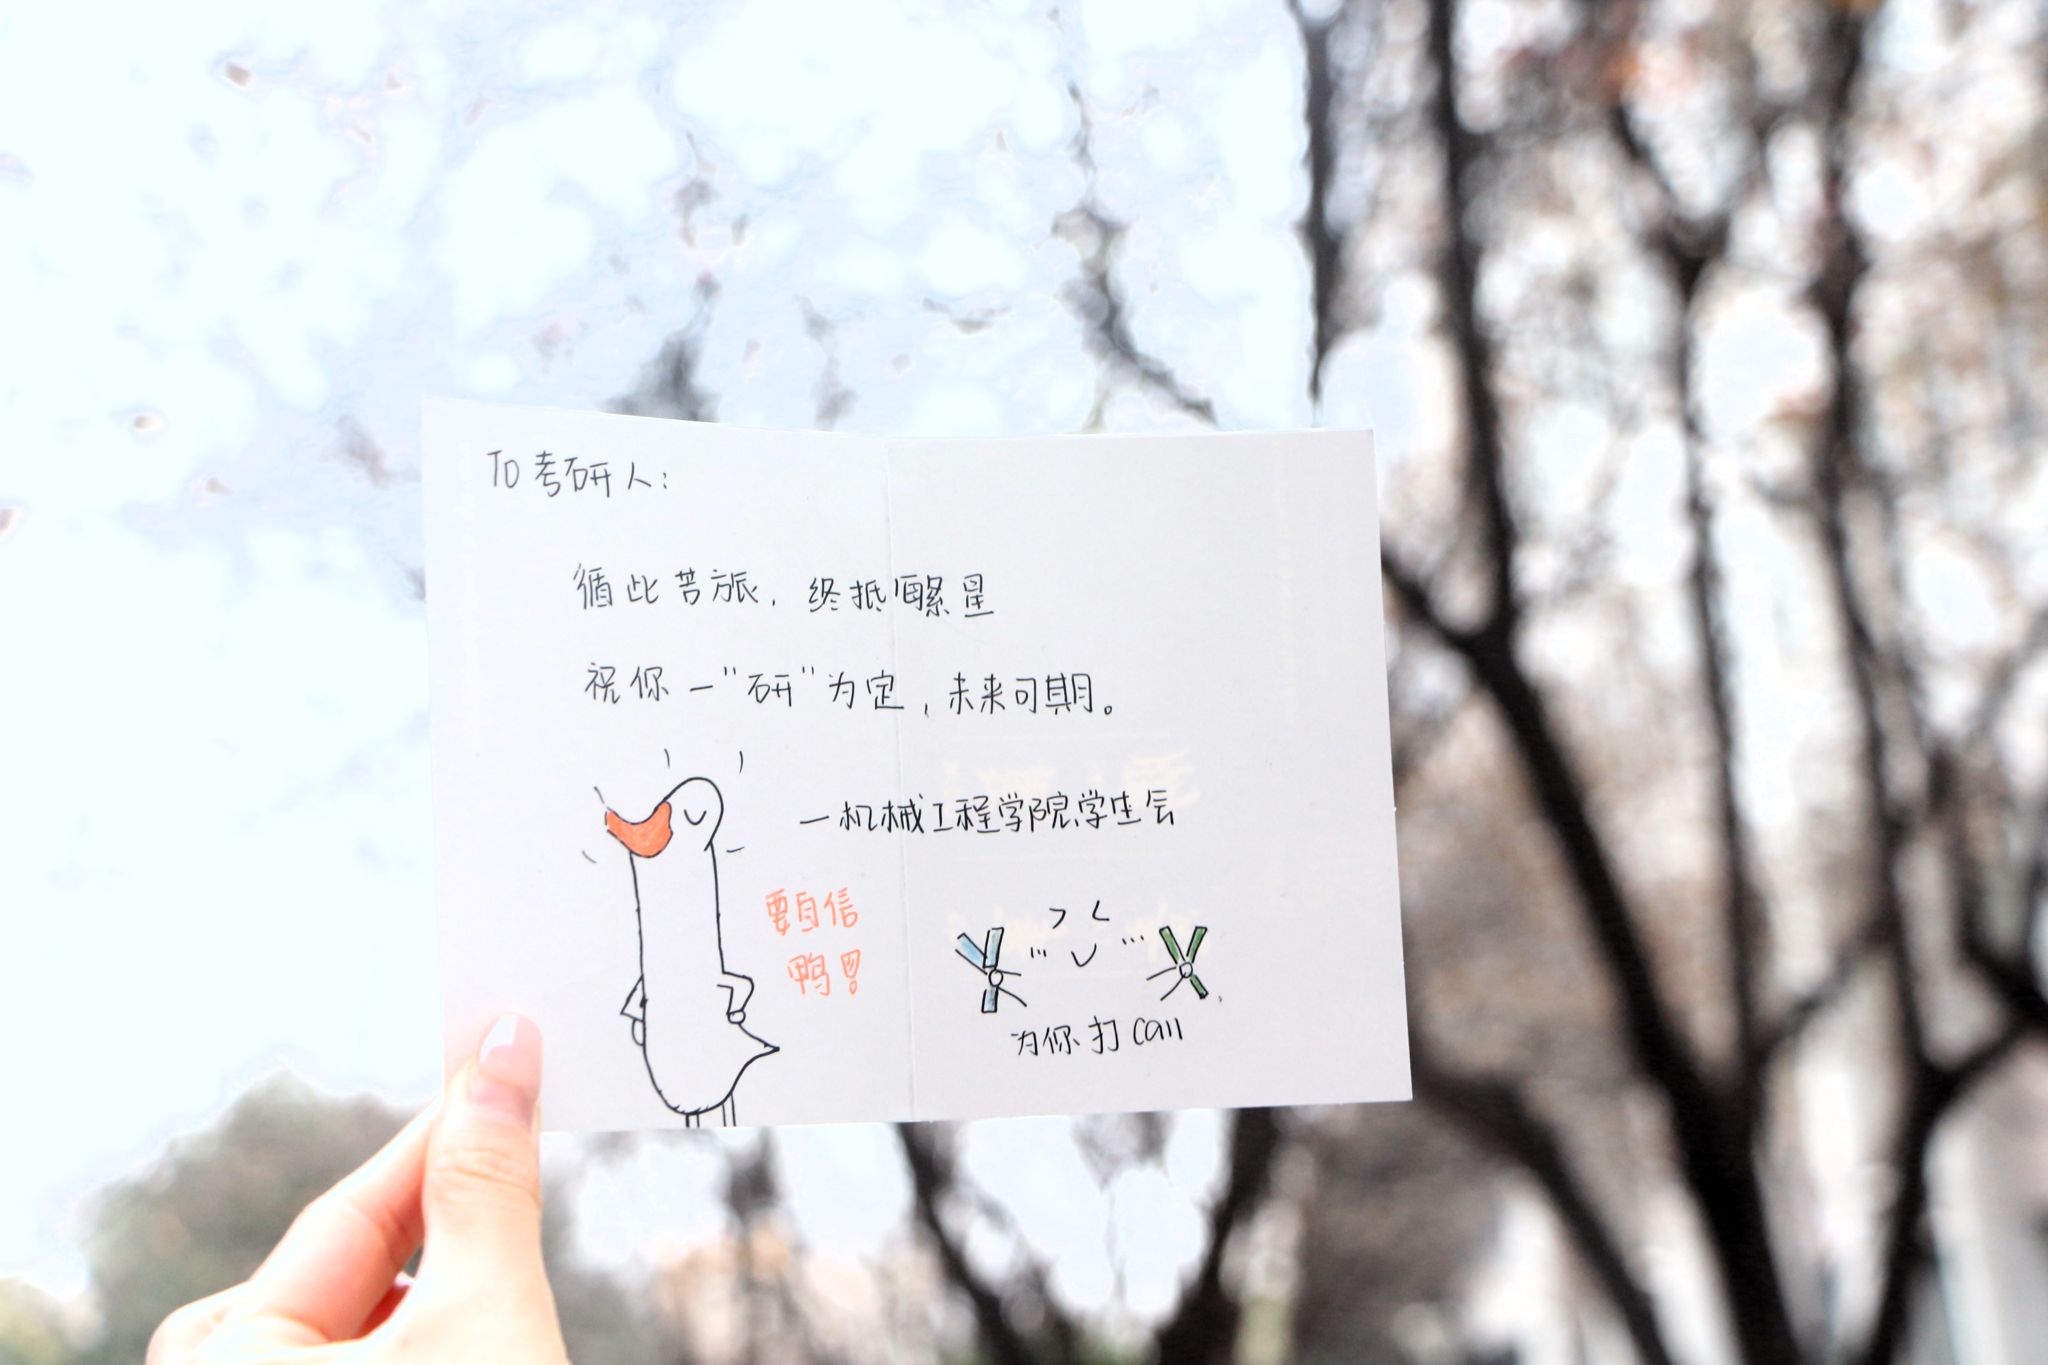 To 考研人：
循此苦旅，终抵繁星
祝你一"研"为定，未来可期。
一机械工程学院学生会
要自信
鸭！
为你打call